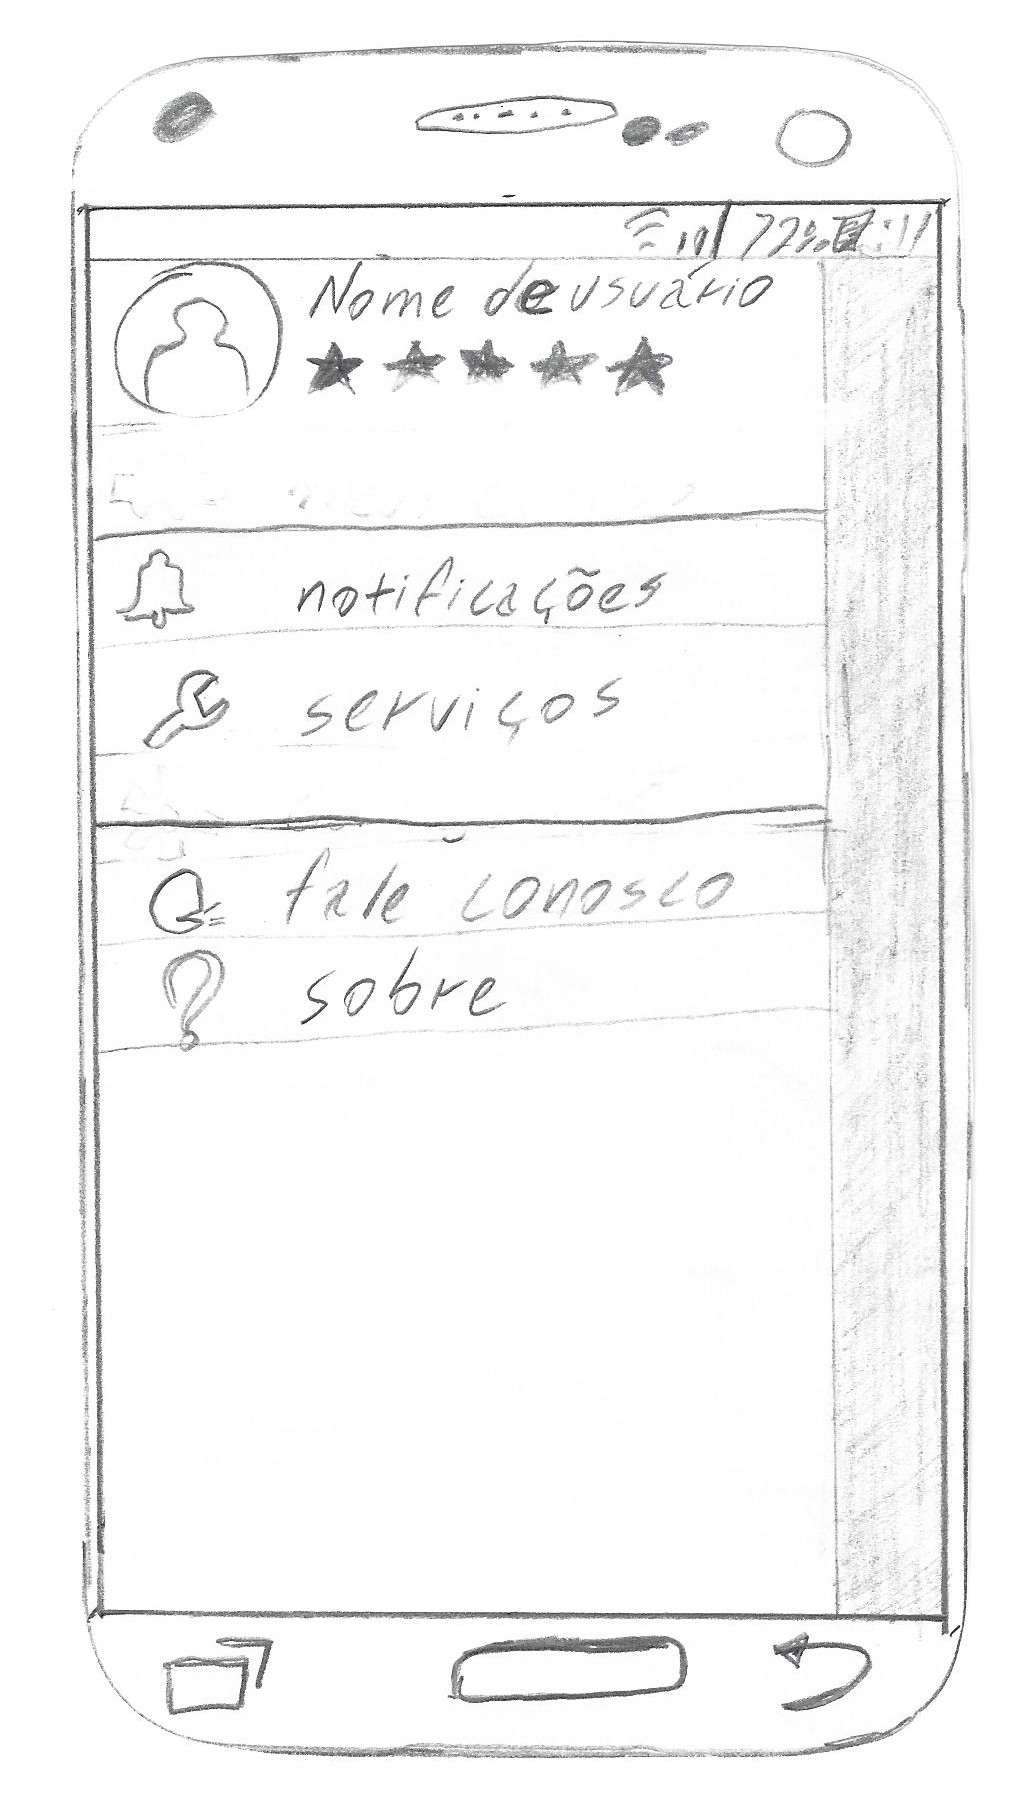 72%
Nome de usuário
notificações
serviços
fale conosco
sobre